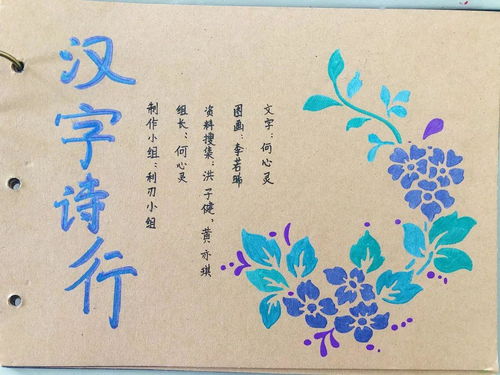 汉字诗行
文字：何心灵
图画：李若晞
资料搜集：洪子健，黄亦琪
组长：何心灵
制作小组：利刃小组